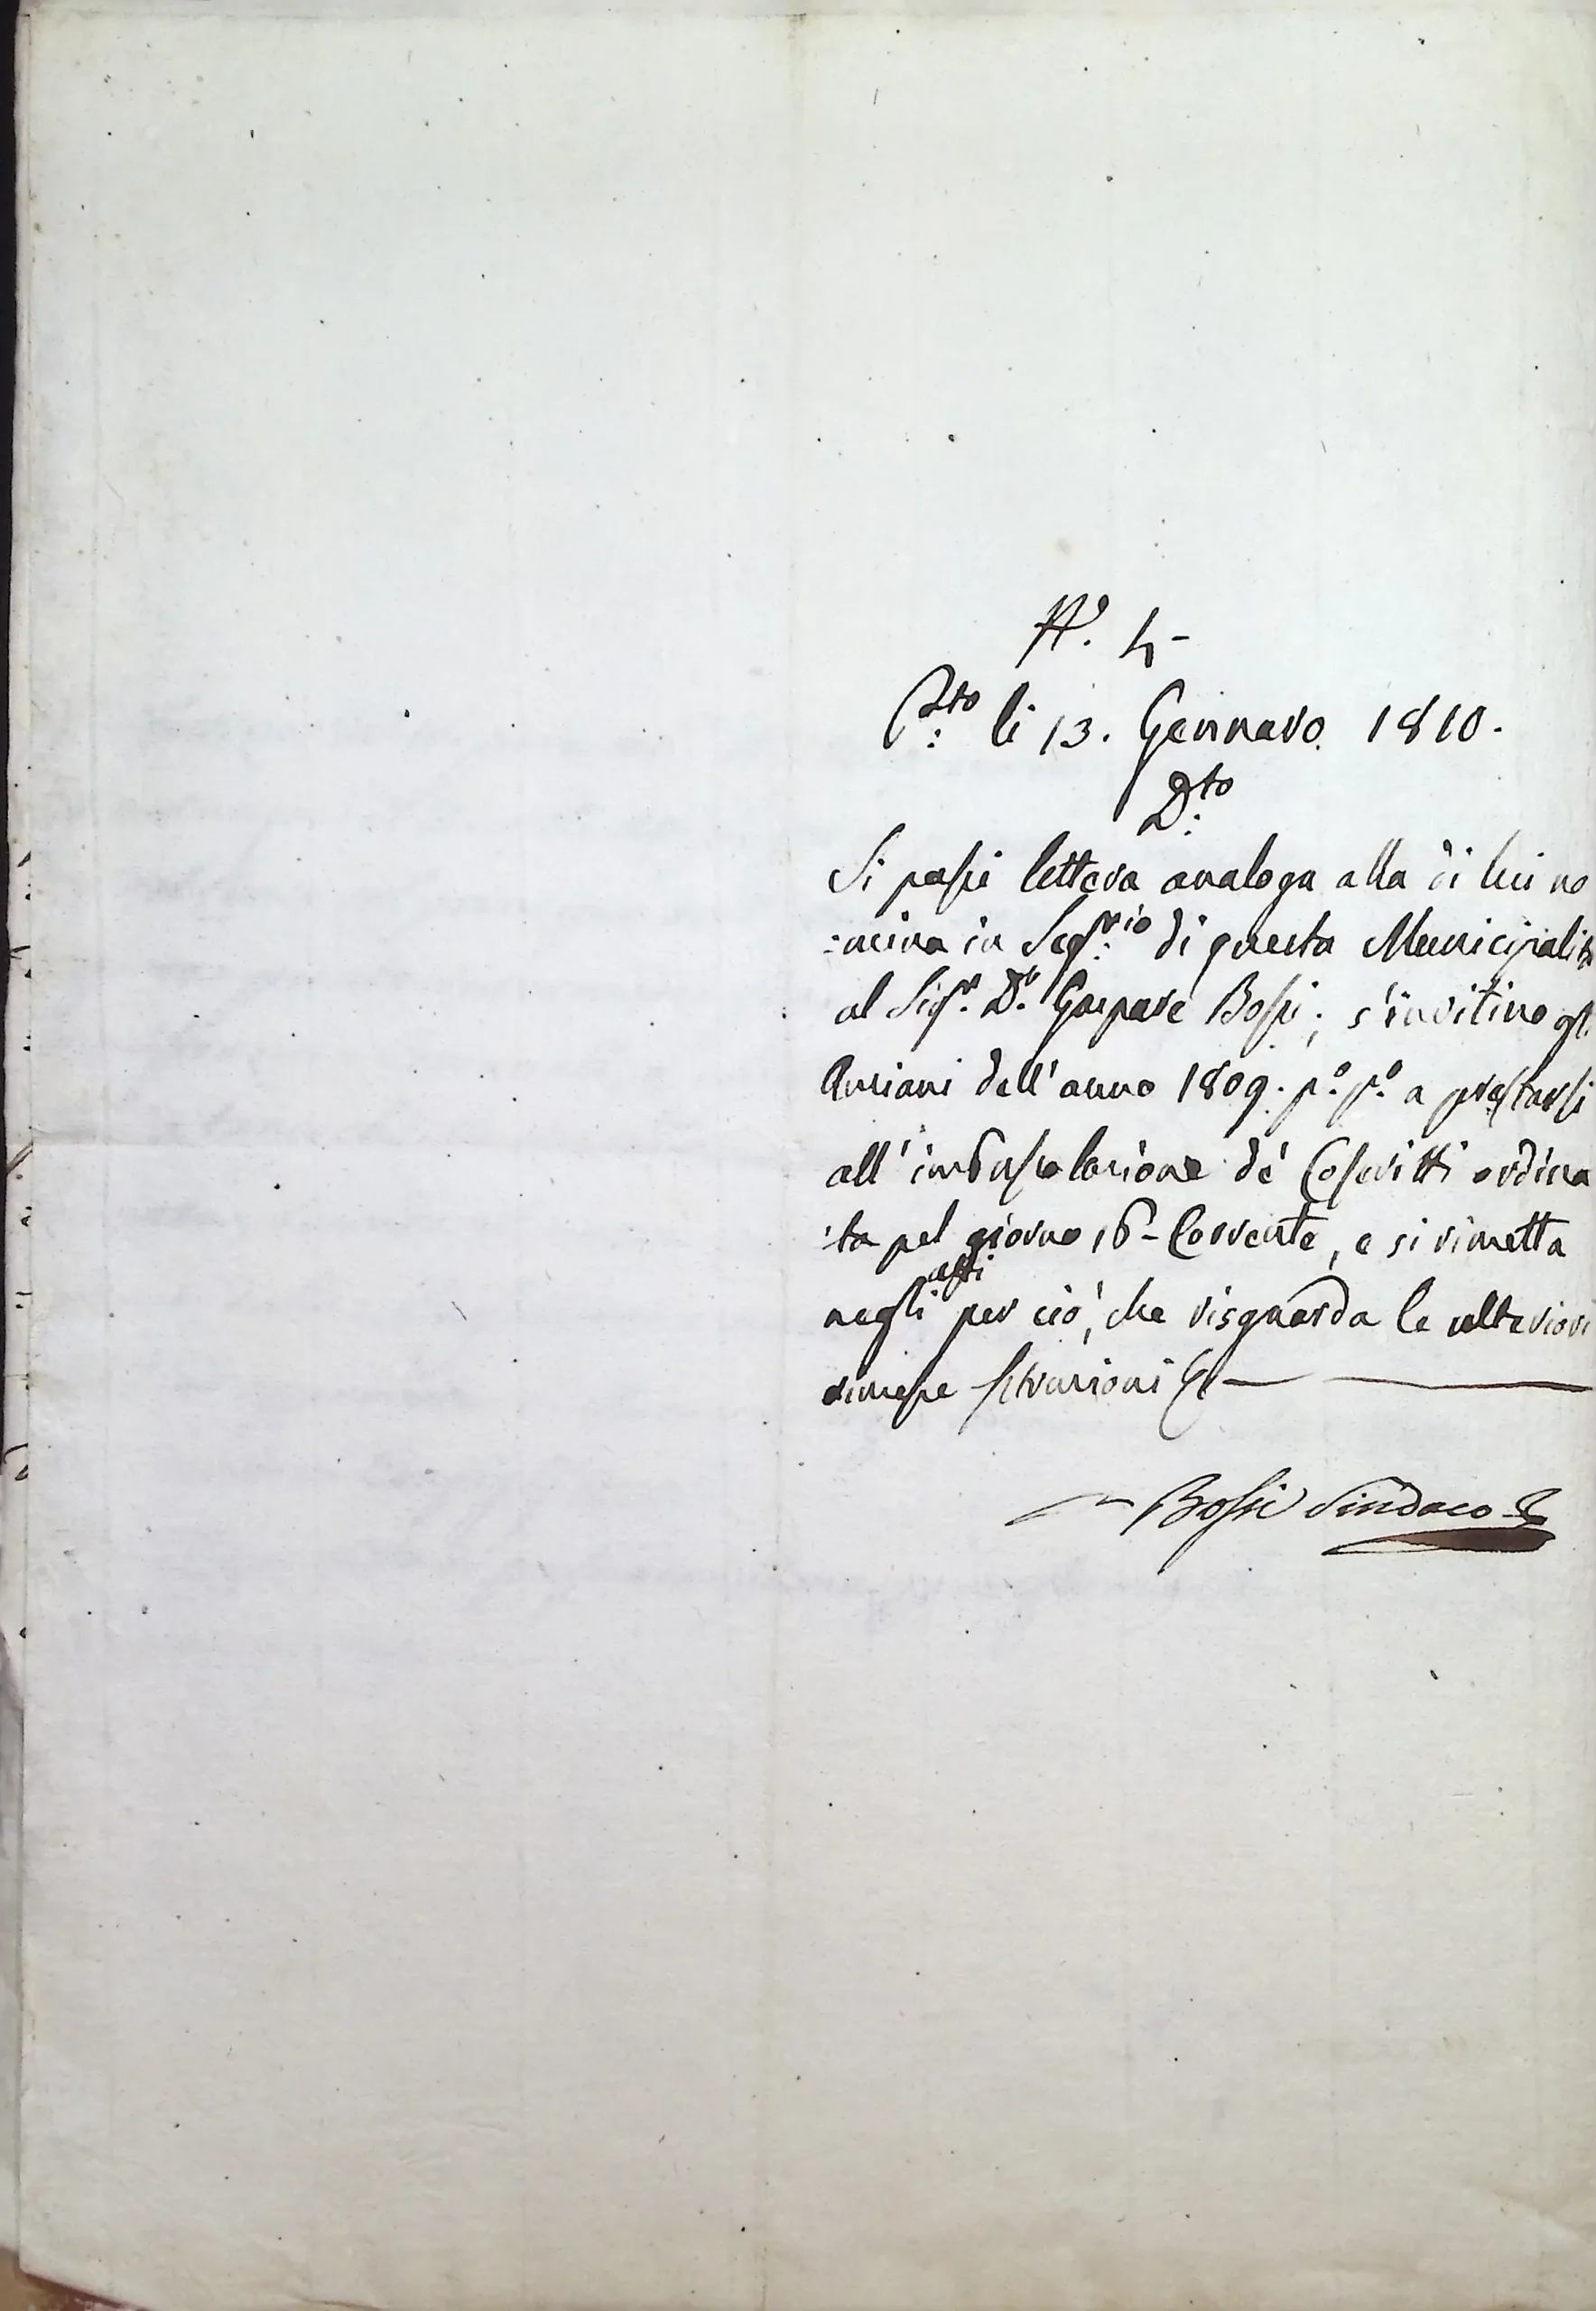 N.º 4-
P.to li 13. Gennaro 1810.
D.to
Si passi lettera analoga alla di lui no
:mina in Seg.rio di questa Municipalità
al Sig.r D.r Gaspare Bossi; s'invitino gli
Anziani dell'anno 1809. p.º p.º a prestarsi
all'imbussolazione de' Coscritti ordina
:ta pel giorno 16- Corrente, e si rimetta
negli atti per ciò, che risguarda le ulteriori
rimesse
Bossi Sindaco